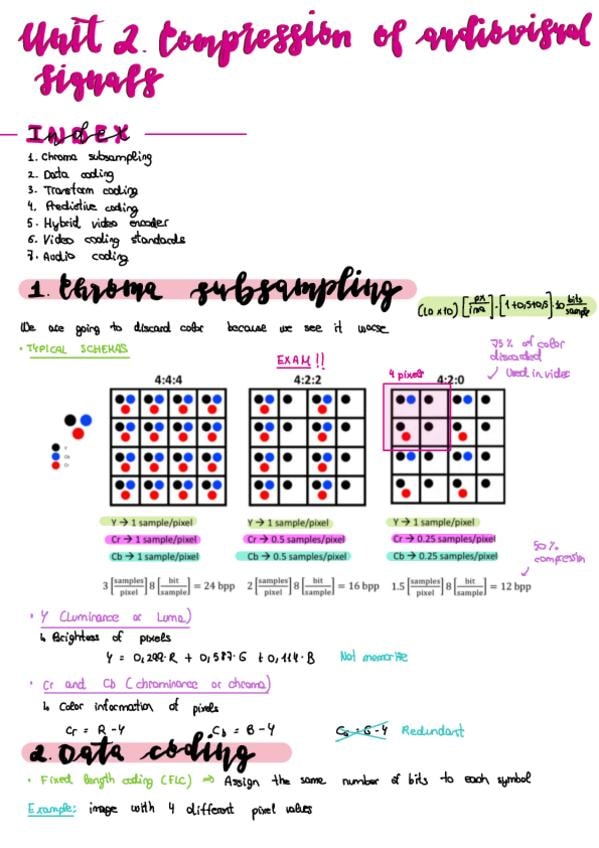 Unit 2. Compression of audiovisual
signals
INDEX
1. Chroma subsampling
2. Data coding
3. Transform coding
4. Predictive coding
5. Hybrid video encoder
6. Video coding standards
7. Audio coding
1. Chroma subsampling
We are going to discard color because we see it worse
• TYPICAL SCHEMAS
EXAM !!
75% of color
discarded
✓ Used in video
4 pixels
4:4:4 4:2:2 4:2:0
Y
Cb
Cr
Y → 1 sample/pixel Y → 1 sample/pixel Y → 1 sample/pixel
Cr → 1 sample/pixel Cr → 0.5 samples/pixel Cr → 0.25 samples/pixel
Cb → 1 sample/pixel Cb → 0.5 samples/pixel Cb → 0.25 samples/pixel
50%
compression
3 [samples/pixel] 8 [bit/sample] = 24 bpp 2 [samples/pixel] 8 [bit/sample] = 16 bpp 1.5 [samples/pixel] 8 [bit/sample] = 12 bpp
• Y (Luminance or Luma)
↳ Brightess of pixels
Y = 0,299·R + 0,587·G + 0,114·B Not memorite
• Cr and Cb (chrominance or chroma)
↳ Color information of pixels
Cr = R-Y Cb = B-Y CG = G-Y Redundant
2. Data coding
• Fixed length coding (FLC) ⇒ Assign the same number of bits to each symbol
Example: image with 4 different pixel values